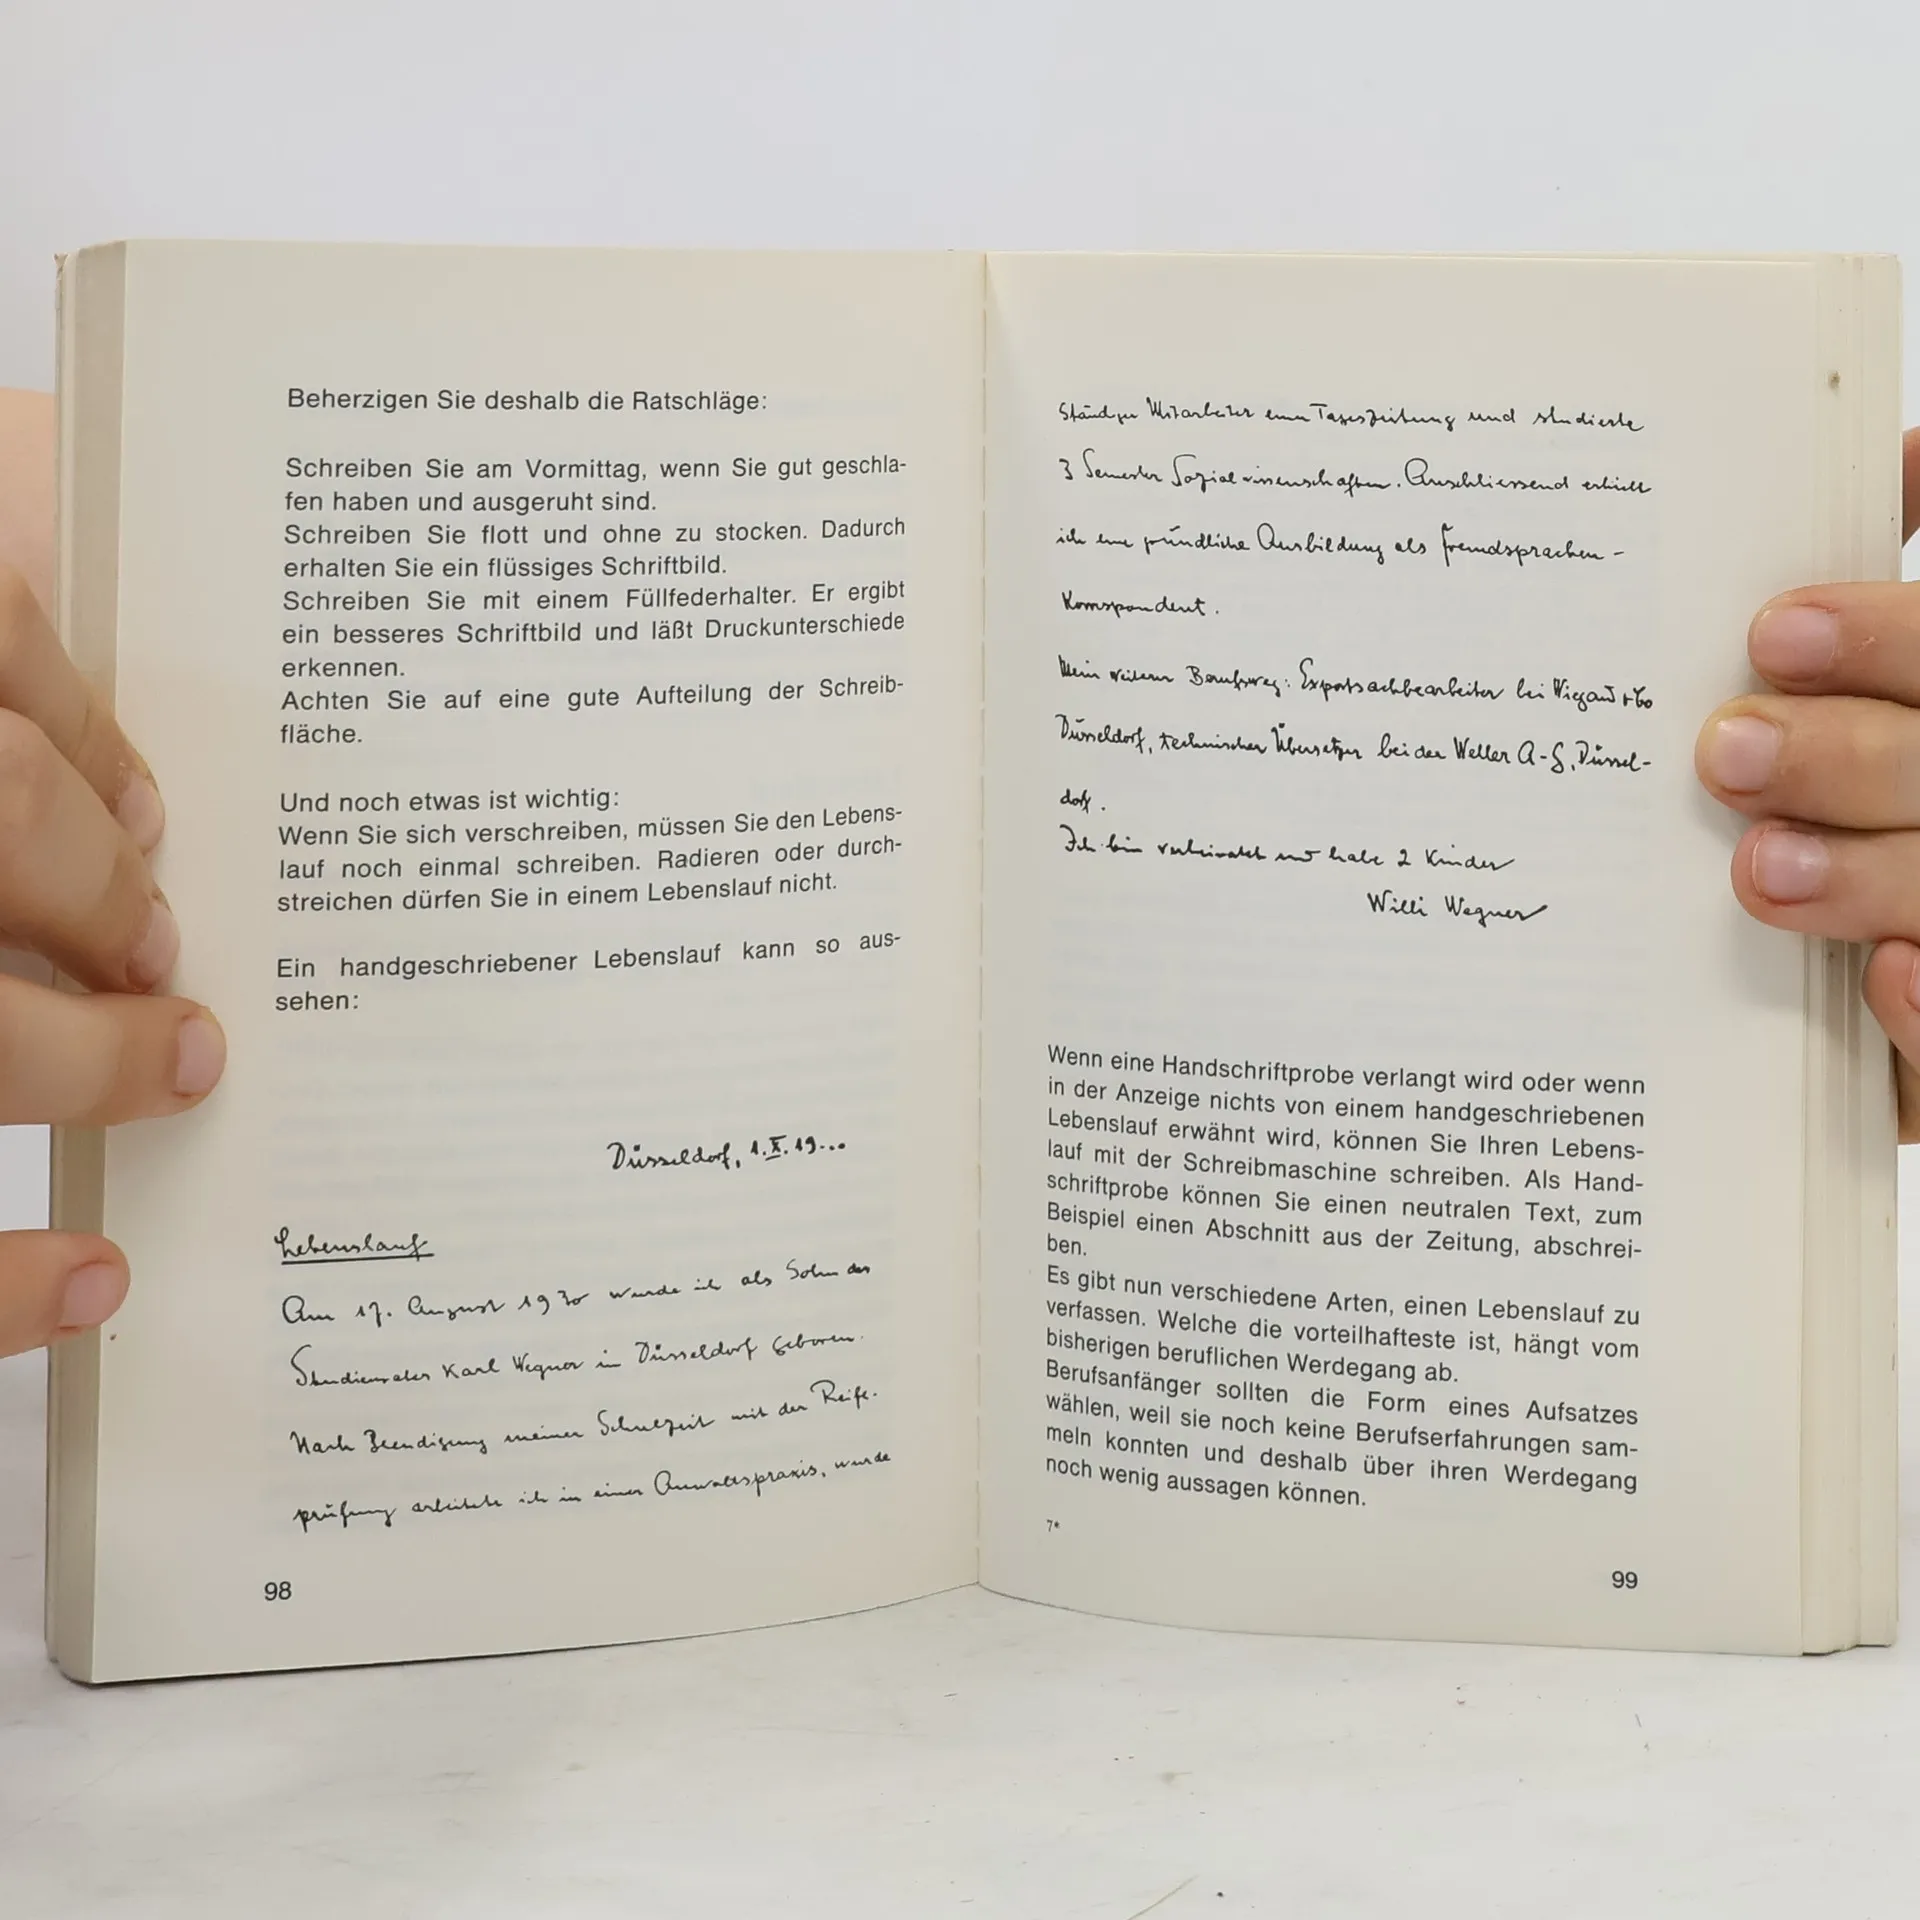 Beherzigen Sie deshalb die Ratschläge:
Schreiben Sie am Vormittag, wenn Sie gut geschla-
fen haben und ausgeruht sind.
Schreiben Sie flott und ohne zu stocken. Dadurch
erhalten Sie ein flüssiges Schriftbild.
Schreiben Sie mit einem Füllfederhalter. Er ergibt
ein besseres Schriftbild und läßt Druckunterschiede
erkennen.
Achten Sie auf eine gute Aufteilung der Schreib-
fläche.
Und noch etwas ist wichtig:
Wenn Sie sich verschreiben, müssen Sie den Lebens-
lauf noch einmal schreiben. Radieren oder durch-
streichen dürfen Sie in einem Lebenslauf nicht.
Ein handgeschriebener Lebenslauf kann so aus-
sehen:
Düsseldorf, 1.X.19...
Lebenslauf
Am 17. August 1930 wurde ich als Sohn des
Studienrates Karl Wegner in Düsseldorf geboren.
Nach Beendigung meiner Schulzeit mit der Reife-
prüfung arbeitete ich in einer Anwaltspraxis, wurde
98
Ständiger Mitarbeiter einer Tageszeitung und studierte
3 Semester Sozialwissenschaften. Anschliessend erhielt
ich eine gründliche Ausbildung als Fremdsprachen-
Korrespondent.
Mein weiterer Berufsweg: Exportsachbearbeiter bei Wiegand + Co
Düsseldorf, technischer Übersetzer bei der Weller A-G, Düssel-
dorf.
Ich bin verheiratet und habe 2 Kinder
Willi Wegner
Wenn eine Handschriftprobe verlangt wird oder wenn
in der Anzeige nichts von einem handgeschriebenen
Lebenslauf erwähnt wird, können Sie Ihren Lebens-
lauf mit der Schreibmaschine schreiben. Als Hand-
schriftprobe können Sie einen neutralen Text, zum
Beispiel einen Abschnitt aus der Zeitung, abschrei-
ben.
Es gibt nun verschiedene Arten, einen Lebenslauf zu
verfassen. Welche die vorteilhafteste ist, hängt vom
bisherigen beruflichen Werdegang ab.
Berufsanfänger sollten die Form eines Aufsatzes
wählen, weil sie noch keine Berufserfahrungen sam-
meln konnten und deshalb über ihren Werdegang
noch wenig aussagen können.
7*
99